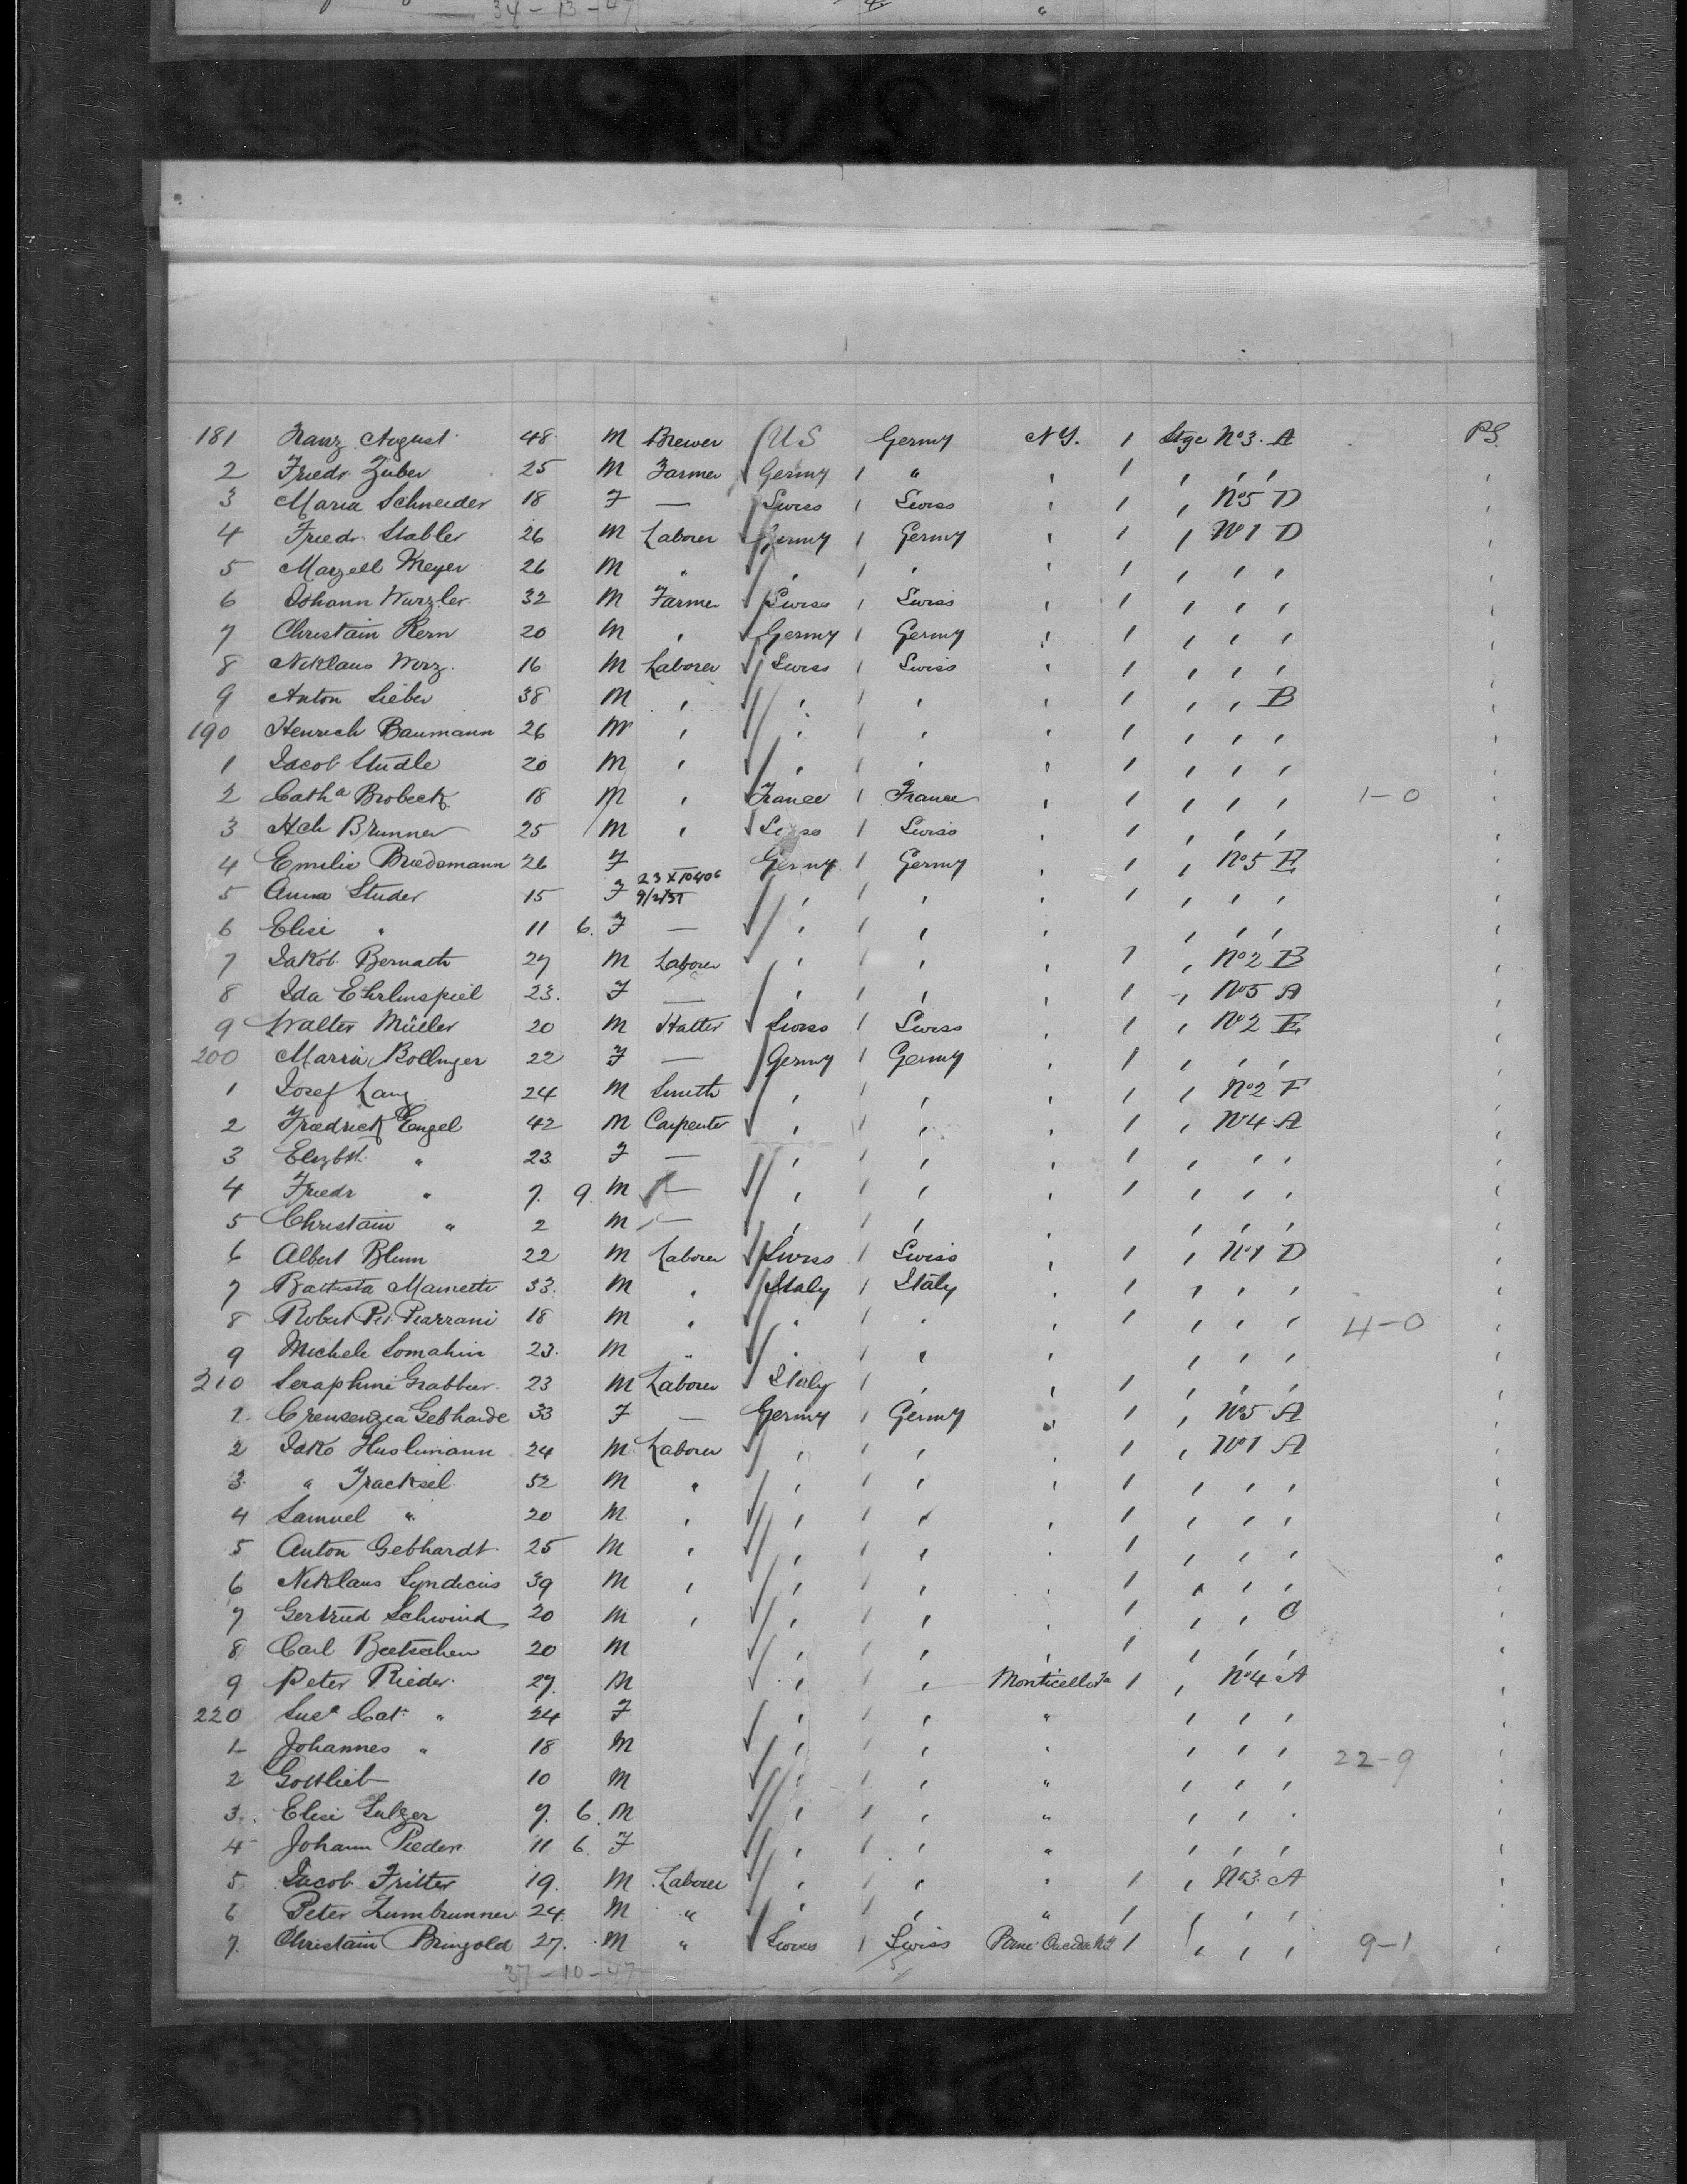 34-13-47
181 Franz August 48 M Brewer US Germy N.Y. 1 Stge No 3. A P.S.
2 Friedr Zuber 25 M Farmer Germy 1 " ' 1 ' ' '
3 Maria Schneider 18 F — Swiss 1 Swiss ' 1 ' No 5 D
4 Friedr Stabler 26 M Laborer Germy 1 Germy ' 1 ' No 1 D
5 Marzell Meyer 26 M " ' 1 ' ' 1 ' ' '
6 Johann Wurzler 32 M Farmer Swiss 1 Swiss ' 1 ' ' '
7 Christain Kern 20 M ' Germy 1 Germy ' 1 ' ' '
8 Niklaus Worz 16 M Laborer Swiss 1 Swiss ' 1 ' ' '
9 Anton Lieber 38 M ' ' 1 ' ' 1 ' ' B
190 Henrich Baumann 26 M ' ' 1 ' ' 1 ' ' '
1 Jacob Studle 20 M ' ' 1 ' ' 1 ' ' '
2 Catha Brobeck 18 M ' France 1 France ' 1 ' ' ' 1-0
3 Hch Brunner 25 M ' Swiss 1 Swiss ' 1 ' ' '
4 Emilie Bredsmann 26 F Germy 1 Germy ' 1 ' No 5 E
5 Anna Studer 15 F 23 X 10406 9/2/37 ' 1 ' ' 1 ' ' '
6 Elise " 11 6. F — ' 1 ' ' ' ' '
7 Jakob Bernath 27 M Laborer ' 1 ' ' 1 ' No 2 B
8 Ida Ehrlinspiel 23. F — ' 1 ' ' 1 ' No 5 A
9 Walter Müller 20 M Hatter Swiss 1 Swiss ' 1 ' No 2 E
200 Maria Bollinger 22 F — Germy 1 Germy ' 1 ' ' '
1 Josef Lang 24 M Smith ' 1 ' ' 1 ' No 2 F
2 Friedrick Engel 42 M Carpenter ' 1 ' ' 1 ' No 4 A
3 Elizbth " 23 F — ' 1 ' ' 1 ' ' '
4 Friedr " 7. 9. M — ' 1 ' ' 1 ' ' '
5 Christain " 2 M — ' 1 ' ' ' ' '
6 Albert Blum 22 M Laborer Swiss 1 Swiss ' 1 ' No 1 D
7 Battista Mainetti 33. M ' Italy 1 Italy ' 1 ' ' '
8 Robert Pearrani 18 M " ' 1 ' ' 1 ' ' ' 4-0
9 Michele Somahin 23. M " ' 1 ' ' ' ' '
210 Seraphine Grabber 23 M Laborer Italy 1 ' ' 1 ' ' '
1. Crensenzia Gebharde 33 F — Germy 1 Germy ' 1 ' No 5 A
2 Jako Huslimann 24 M Laborer ' 1 ' ' 1 ' No 1 A
3. " Tracksel 52 M " ' 1 ' ' 1 ' ' '
4 Samuel " 20 M ' ' 1 ' ' 1 ' ' '
5 Anton Gebhardt 25 M ' ' 1 ' ' 1 ' ' '
6 Niklaus Syndicus 39 M ' ' 1 ' ' 1 ' ' '
7 Gertrud Schwind 20 M ' ' 1 ' ' 1 ' ' C
8 Carl Beetschen 20 M ' 1 ' ' 1 ' ' '
9 Peter Rieder 27. M ' 1 ' Monticello Ia 1 ' No 4 A
220 Susa Cat " 24 F ' 1 ' " ' ' '
1 Johannes " 18 M ' 1 ' " ' ' ' 22-9
2 Gottlieb 10 M ' 1 ' " ' ' '
3. Elise Sulzer 7. 6. M ' 1 ' " ' ' '
4 Johann Rieder 11 6. F ' 1 ' " ' ' '
5 Jacob Fritter 19. M Laborer ' 1 ' " 1 ' No 3. A
6 Peter Zumbrunner 24. M " ' 1 ' " 1 ' ' '
7. Christain Bringold 27. M " Swiss 1 Swiss Oneida NY 1 ' ' ' 9-1
37-10-47